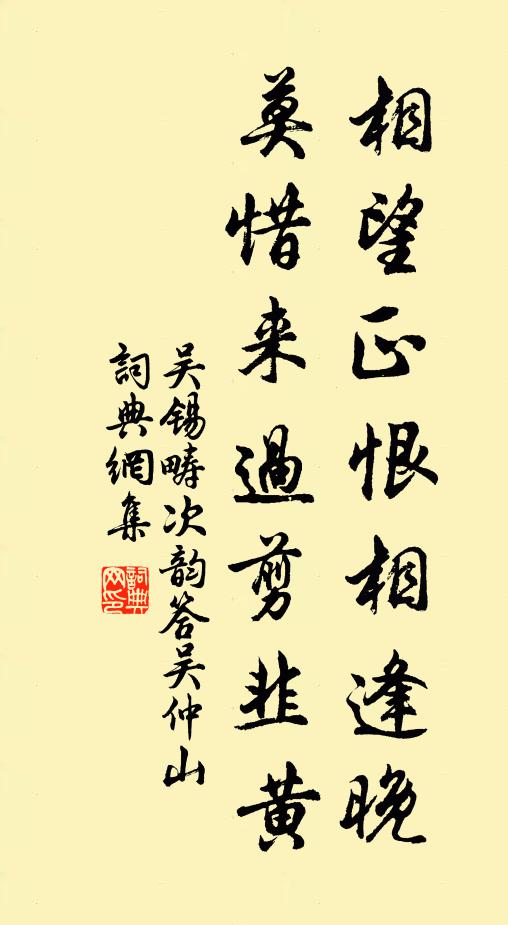 相望正恨相逢晚
莫惜来過剪韭黄
吴錫疇次韵答吴仲山
詞典網集
詞典网印